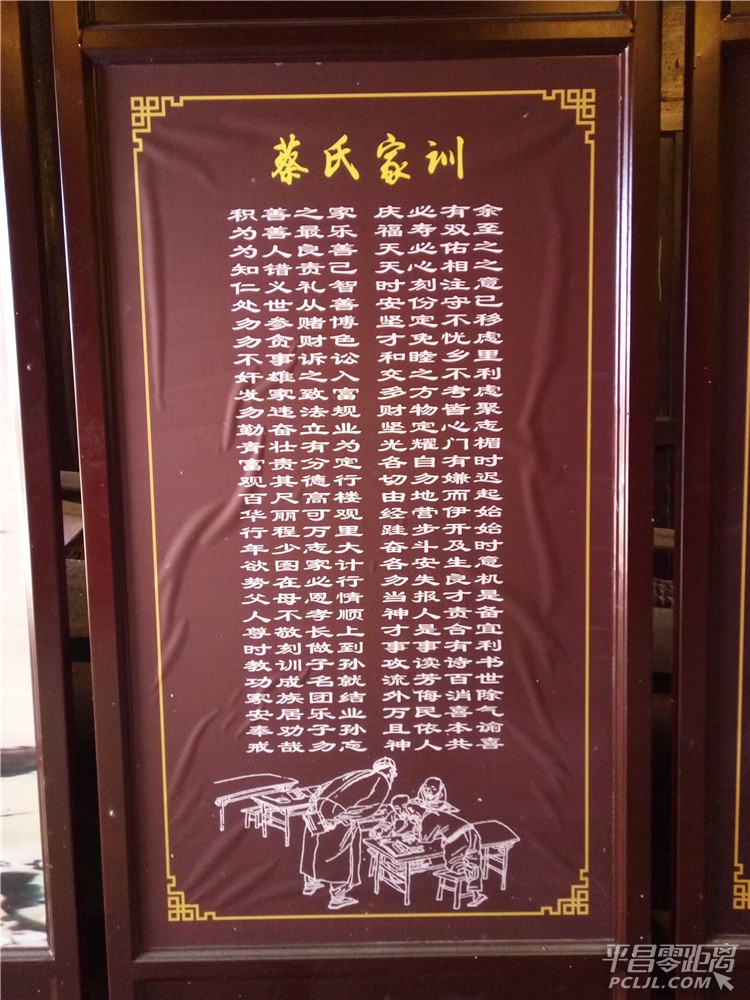 蔡氏家训
积善之家 庆必有余
为善最乐 福寿双至
为人良善 天必佑之
知错责己 天心相之
仁义礼智 时刻注意
处世从善 安份守已
勿参赌博 坚定不移
勿贪财色 才免忧虑
不事诉讼 和睦乡里
奸雄之入 交之不利
发家致富 多方考虑
勿违法规 财物皆聚
勤奋立业 坚定心志
青壮有为 光耀门楣
富贵分定 各自有时
观其德行 切勿嫌迟
百尺高楼 由地而起
华丽可观 经营伊始
行程万里 跬步开始
年少志大 奋斗及时
欲图家计 各安生意
势在必行 勿失良机
父母恩情 当报才是
人不孝顺 神人责备
尊敬长上 才是合宜
时刻做到 事事有利
教训子孙 攻读诗书
功成名就 流芳百世
家族团结 外侮消除
安居乐业 万民喜气
奉劝子孙 且依本谕
戒哉勿忘 神人共喜
平昌零距离
PCLJL.COM